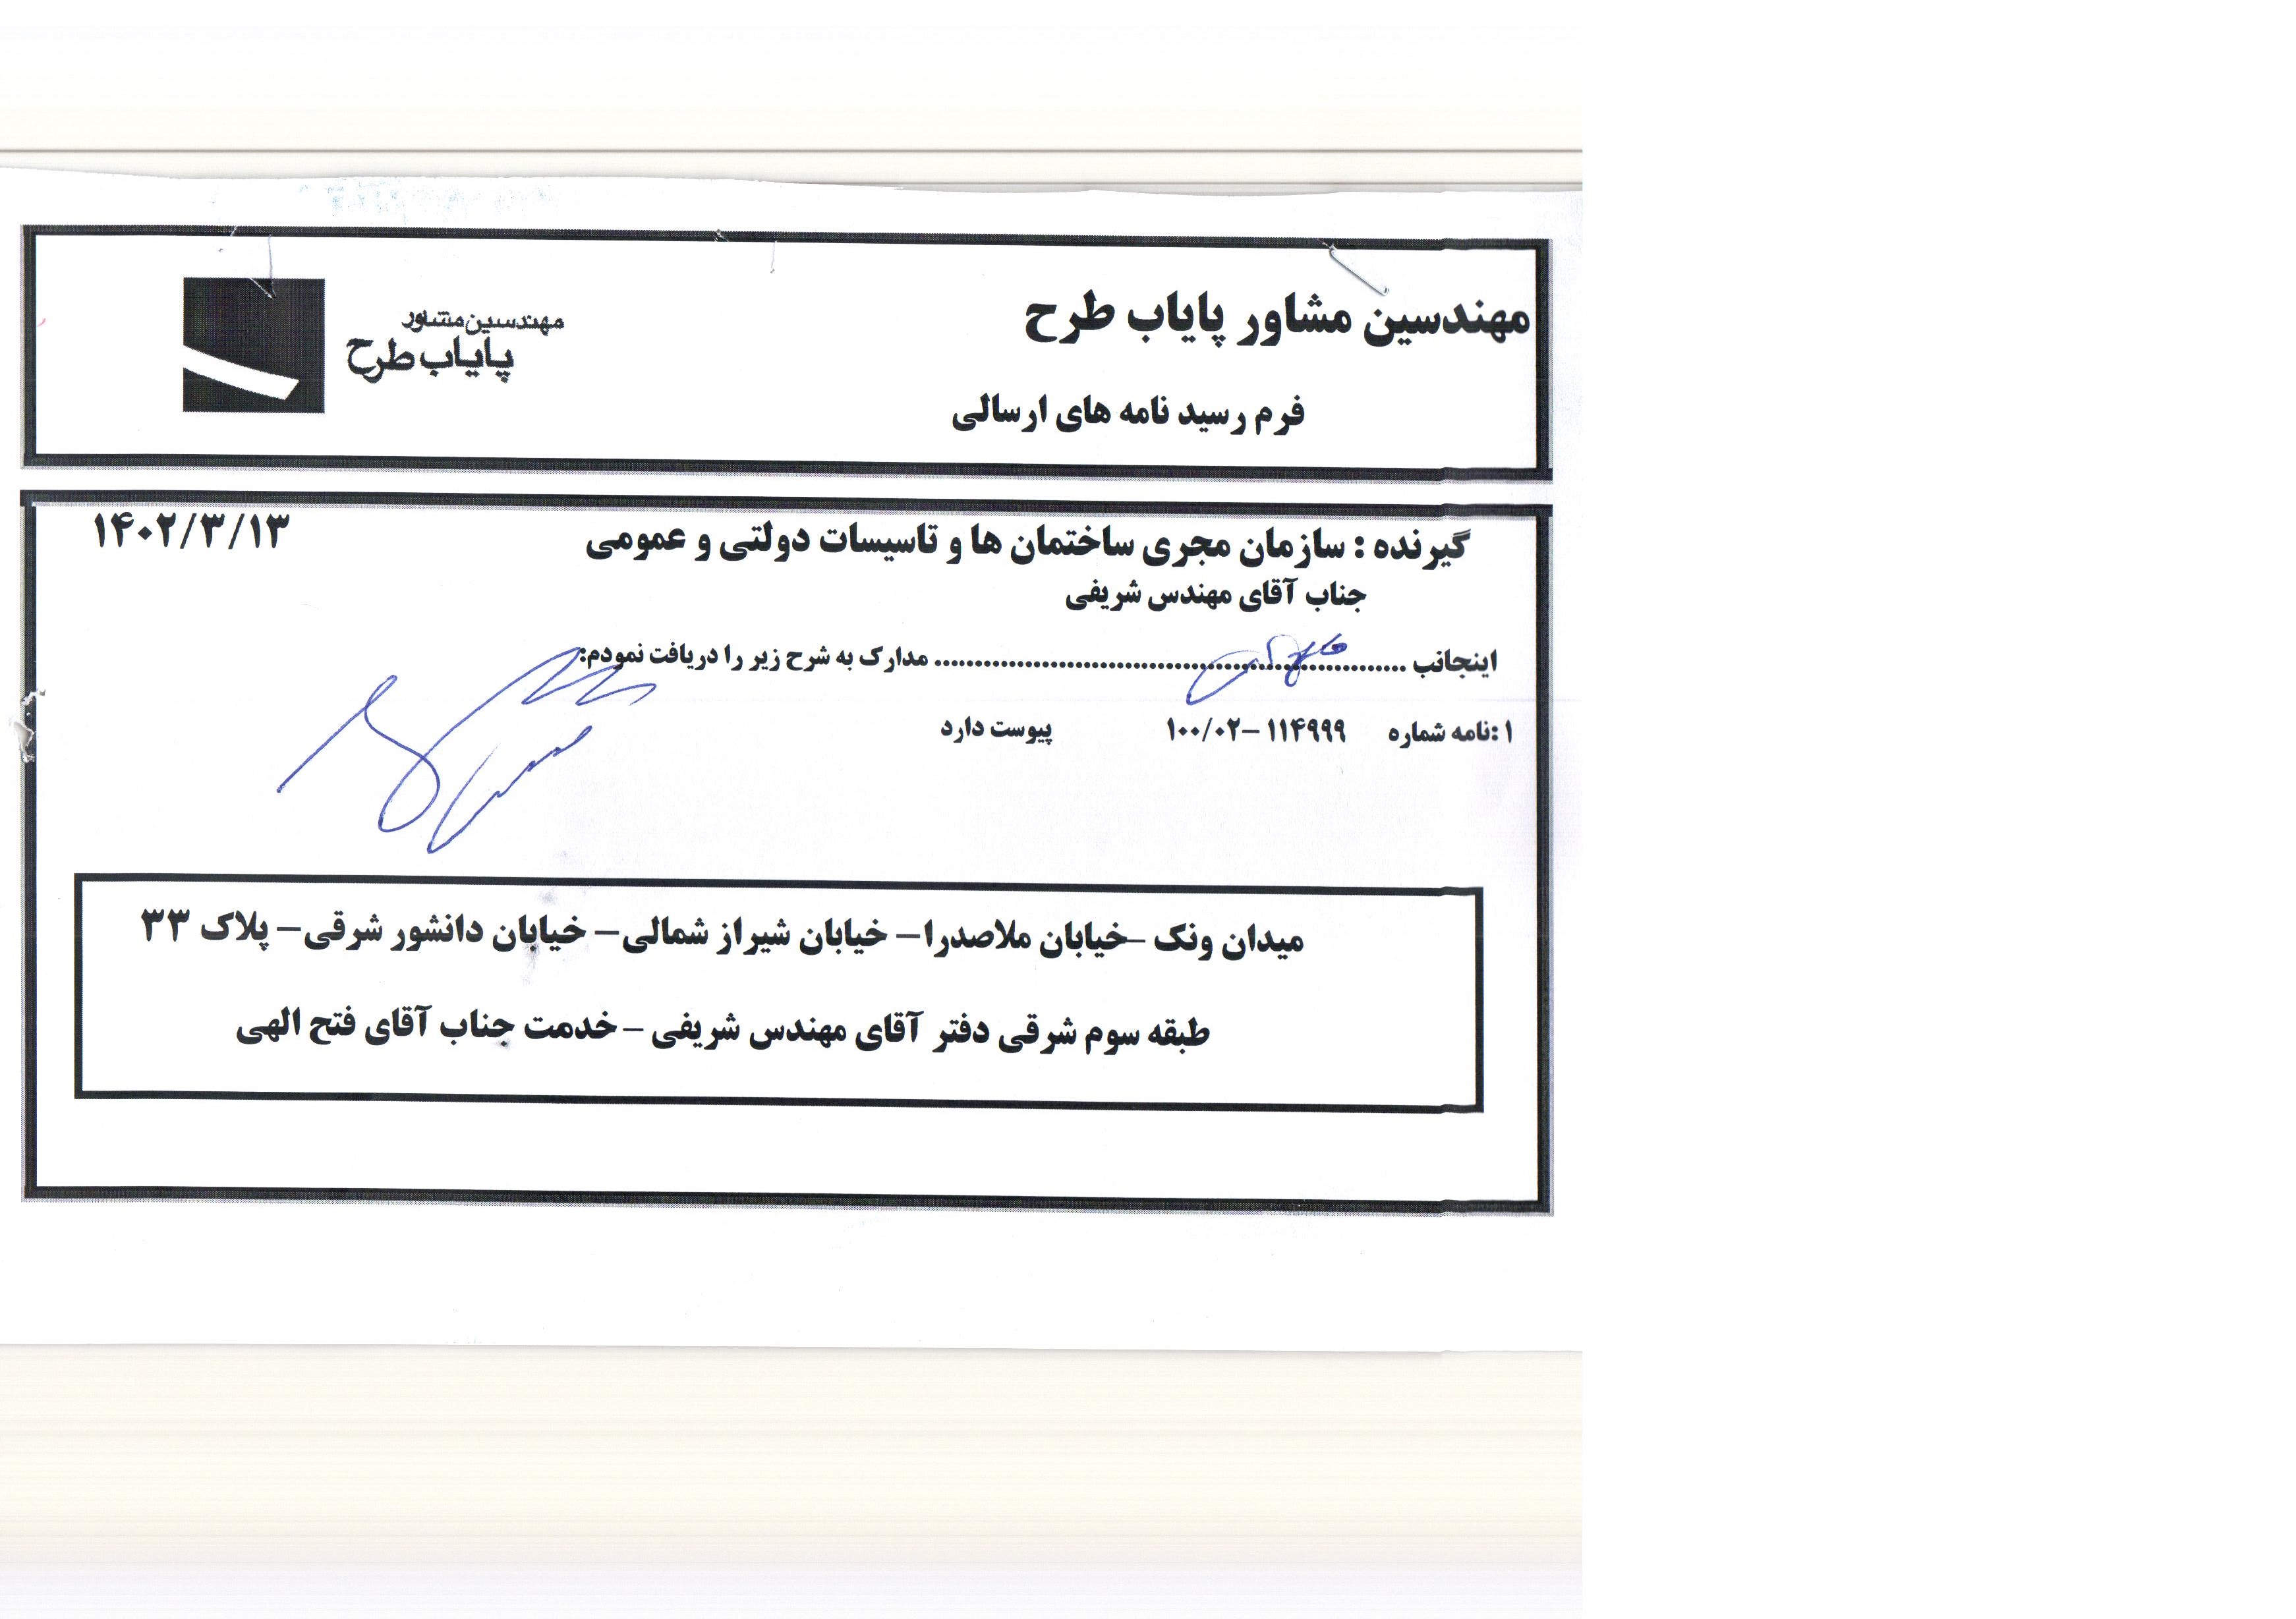 مهندسین مشاور پایاب طرح
مهندسین مشاور
پایاب طرح
فرم رسید نامه های ارسالی
گیرنده : سازمان مجری ساختمان ها و تاسیسات دولتی و عمومی
۱۴۰۲/۳/۱۳
جناب آقای مهندس شریفی
اینجانب ........................................................... مدارک به شرح زیر را دریافت نمودم:
۱ :نامه شماره ۱۱۴۹۹۹ –۱۰۰/۰۲ پیوست دارد
میدان ونک –خیابان ملاصدرا– خیابان شیراز شمالی– خیابان دانشور شرقی– پلاک ۳۳
طبقه سوم شرقی دفتر آقای مهندس شریفی – خدمت جناب آقای فتح الهی